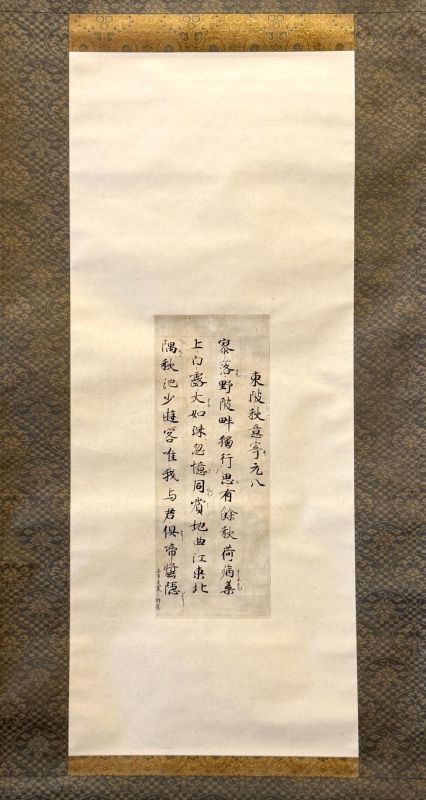 東陂秋意寄元八
寥落野陂畔獨行思有餘秋荷病葉
上白露大如珠忽憶同賞地曲江東北
隅秋池少遊客唯我与君俱啼蛩隠